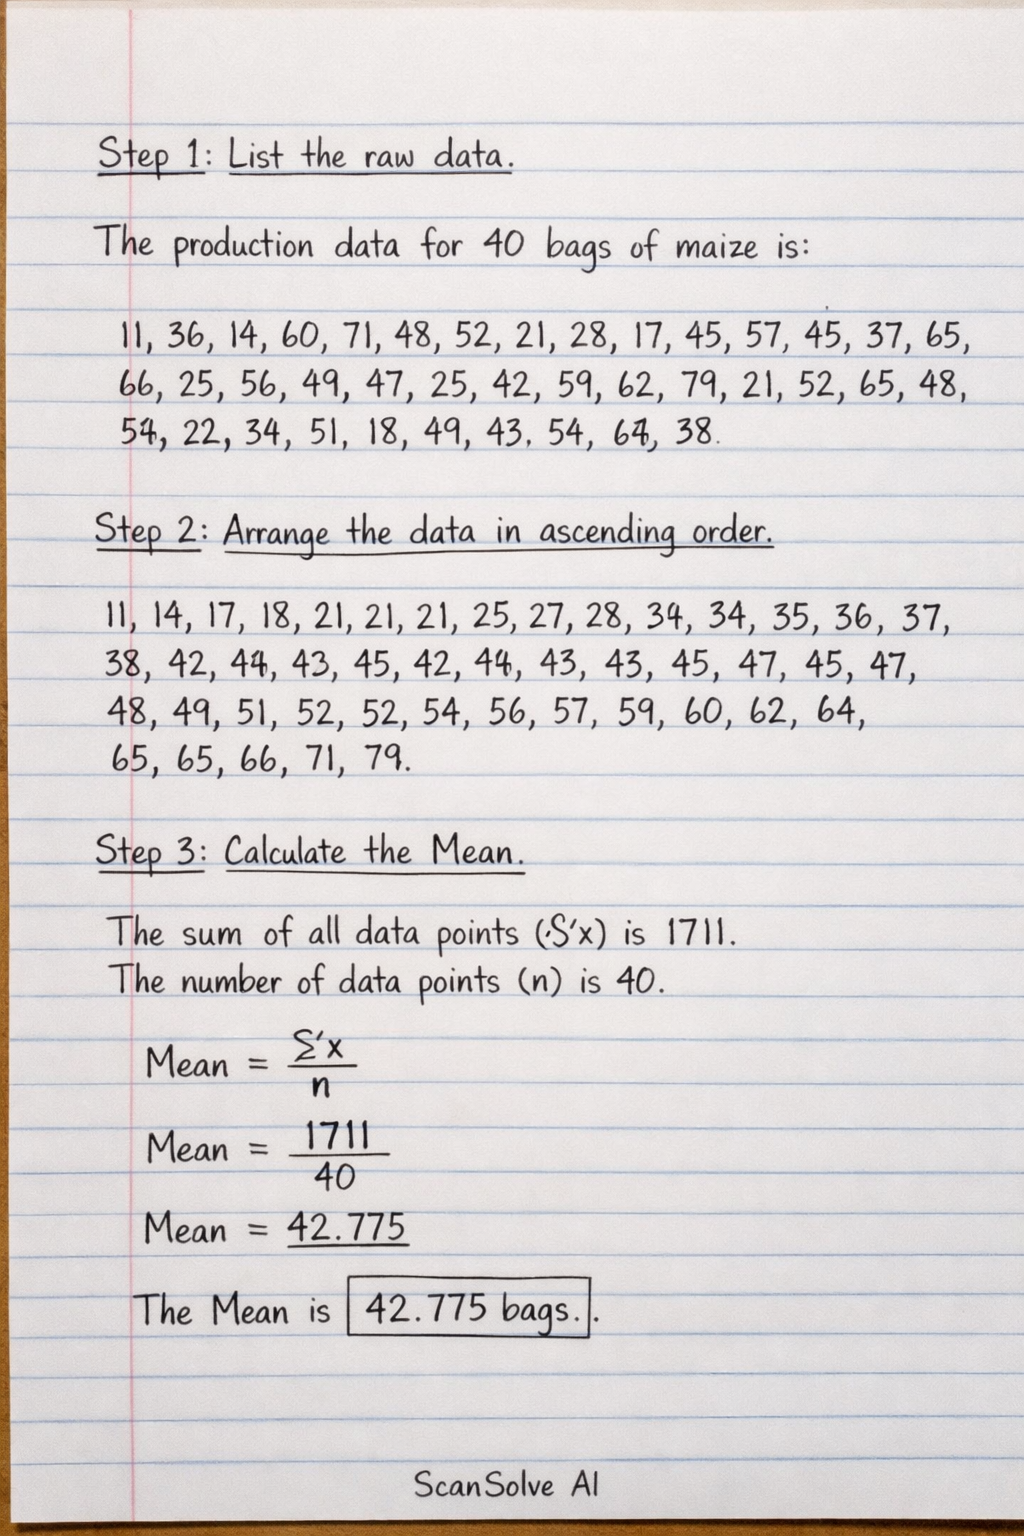 Step 1: List the raw data.
The production data for 40 bags of maize is:
11, 36, 14, 60, 71, 48, 52, 21, 28, 17, 45, 57, 45, 37, 65,
66, 25, 56, 49, 47, 25, 42, 59, 62, 79, 21, 52, 65, 48,
54, 22, 34, 51, 18, 49, 43, 54, 64, 38.
Step 2: Arrange the data in ascending order.
11, 14, 17, 18, 21, 21, 21, 25, 27, 28, 34, 34, 35, 36, 37,
38, 42, 44, 43, 45, 42, 44, 43, 43, 45, 47, 45, 47,
48, 49, 51, 52, 52, 54, 56, 57, 59, 60, 62, 64,
65, 65, 66, 71, 79.
Step 3: Calculate the Mean.
The sum of all data points (S'x) is 1711.
The number of data points (n) is 40.
Mean = Σ'x
n
Mean = 1711
40
Mean = 42.775
The Mean is 42.775 bags..
ScanSolve AI